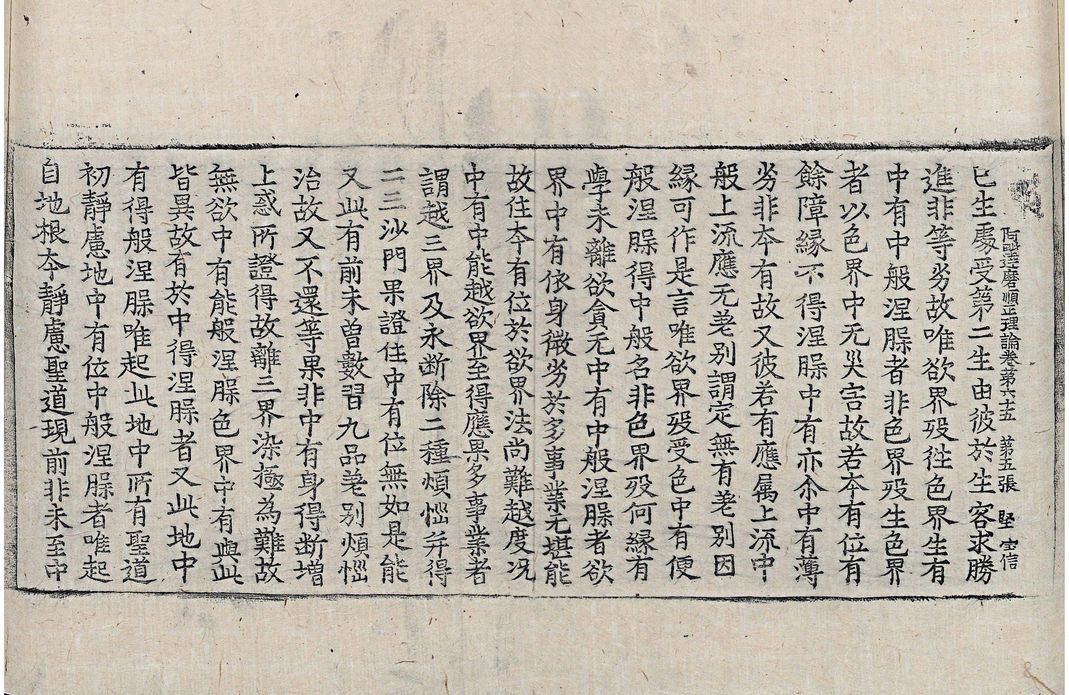 阿毗達磨順正理論卷第六十五 第五張 堅 宝信
已生處受第二生由彼於生容求勝
進非等劣故唯欲界殁徃色界生有
中有中般涅脲者非色界殁生色界
者以色界中无灾害故若夲有位有
餘障緣不得涅脲中有亦尒中有薄
劣非夲有故又彼若有應属上流中
般上流應无差别謂定無有差别因
緣可作是言唯欲界殁受色中有便
般涅脲得中般名非色界殁何緣有
學未離欲貪无中有中般涅脲者欲
界中有依身微劣於多事業无堪能
故住夲有位於欲界法尚難越度况
中有中能越欲界至得應果多事業者
謂越三界及永断除二種煩惱并得
二三沙門果證住中有位無如是能
又此有前未曽數習九品差别煩惱
治故又不還等果非中有身得断增
上惑所證得故離三界染極為難故
無欲中有能般涅脲色界中有與此
皆異故有於中得涅脲者又此地中
有得般涅脲唯起此地中所有聖道
初靜慮地中有位中般涅脲者唯起
自地根夲靜慮聖道現前非未至中